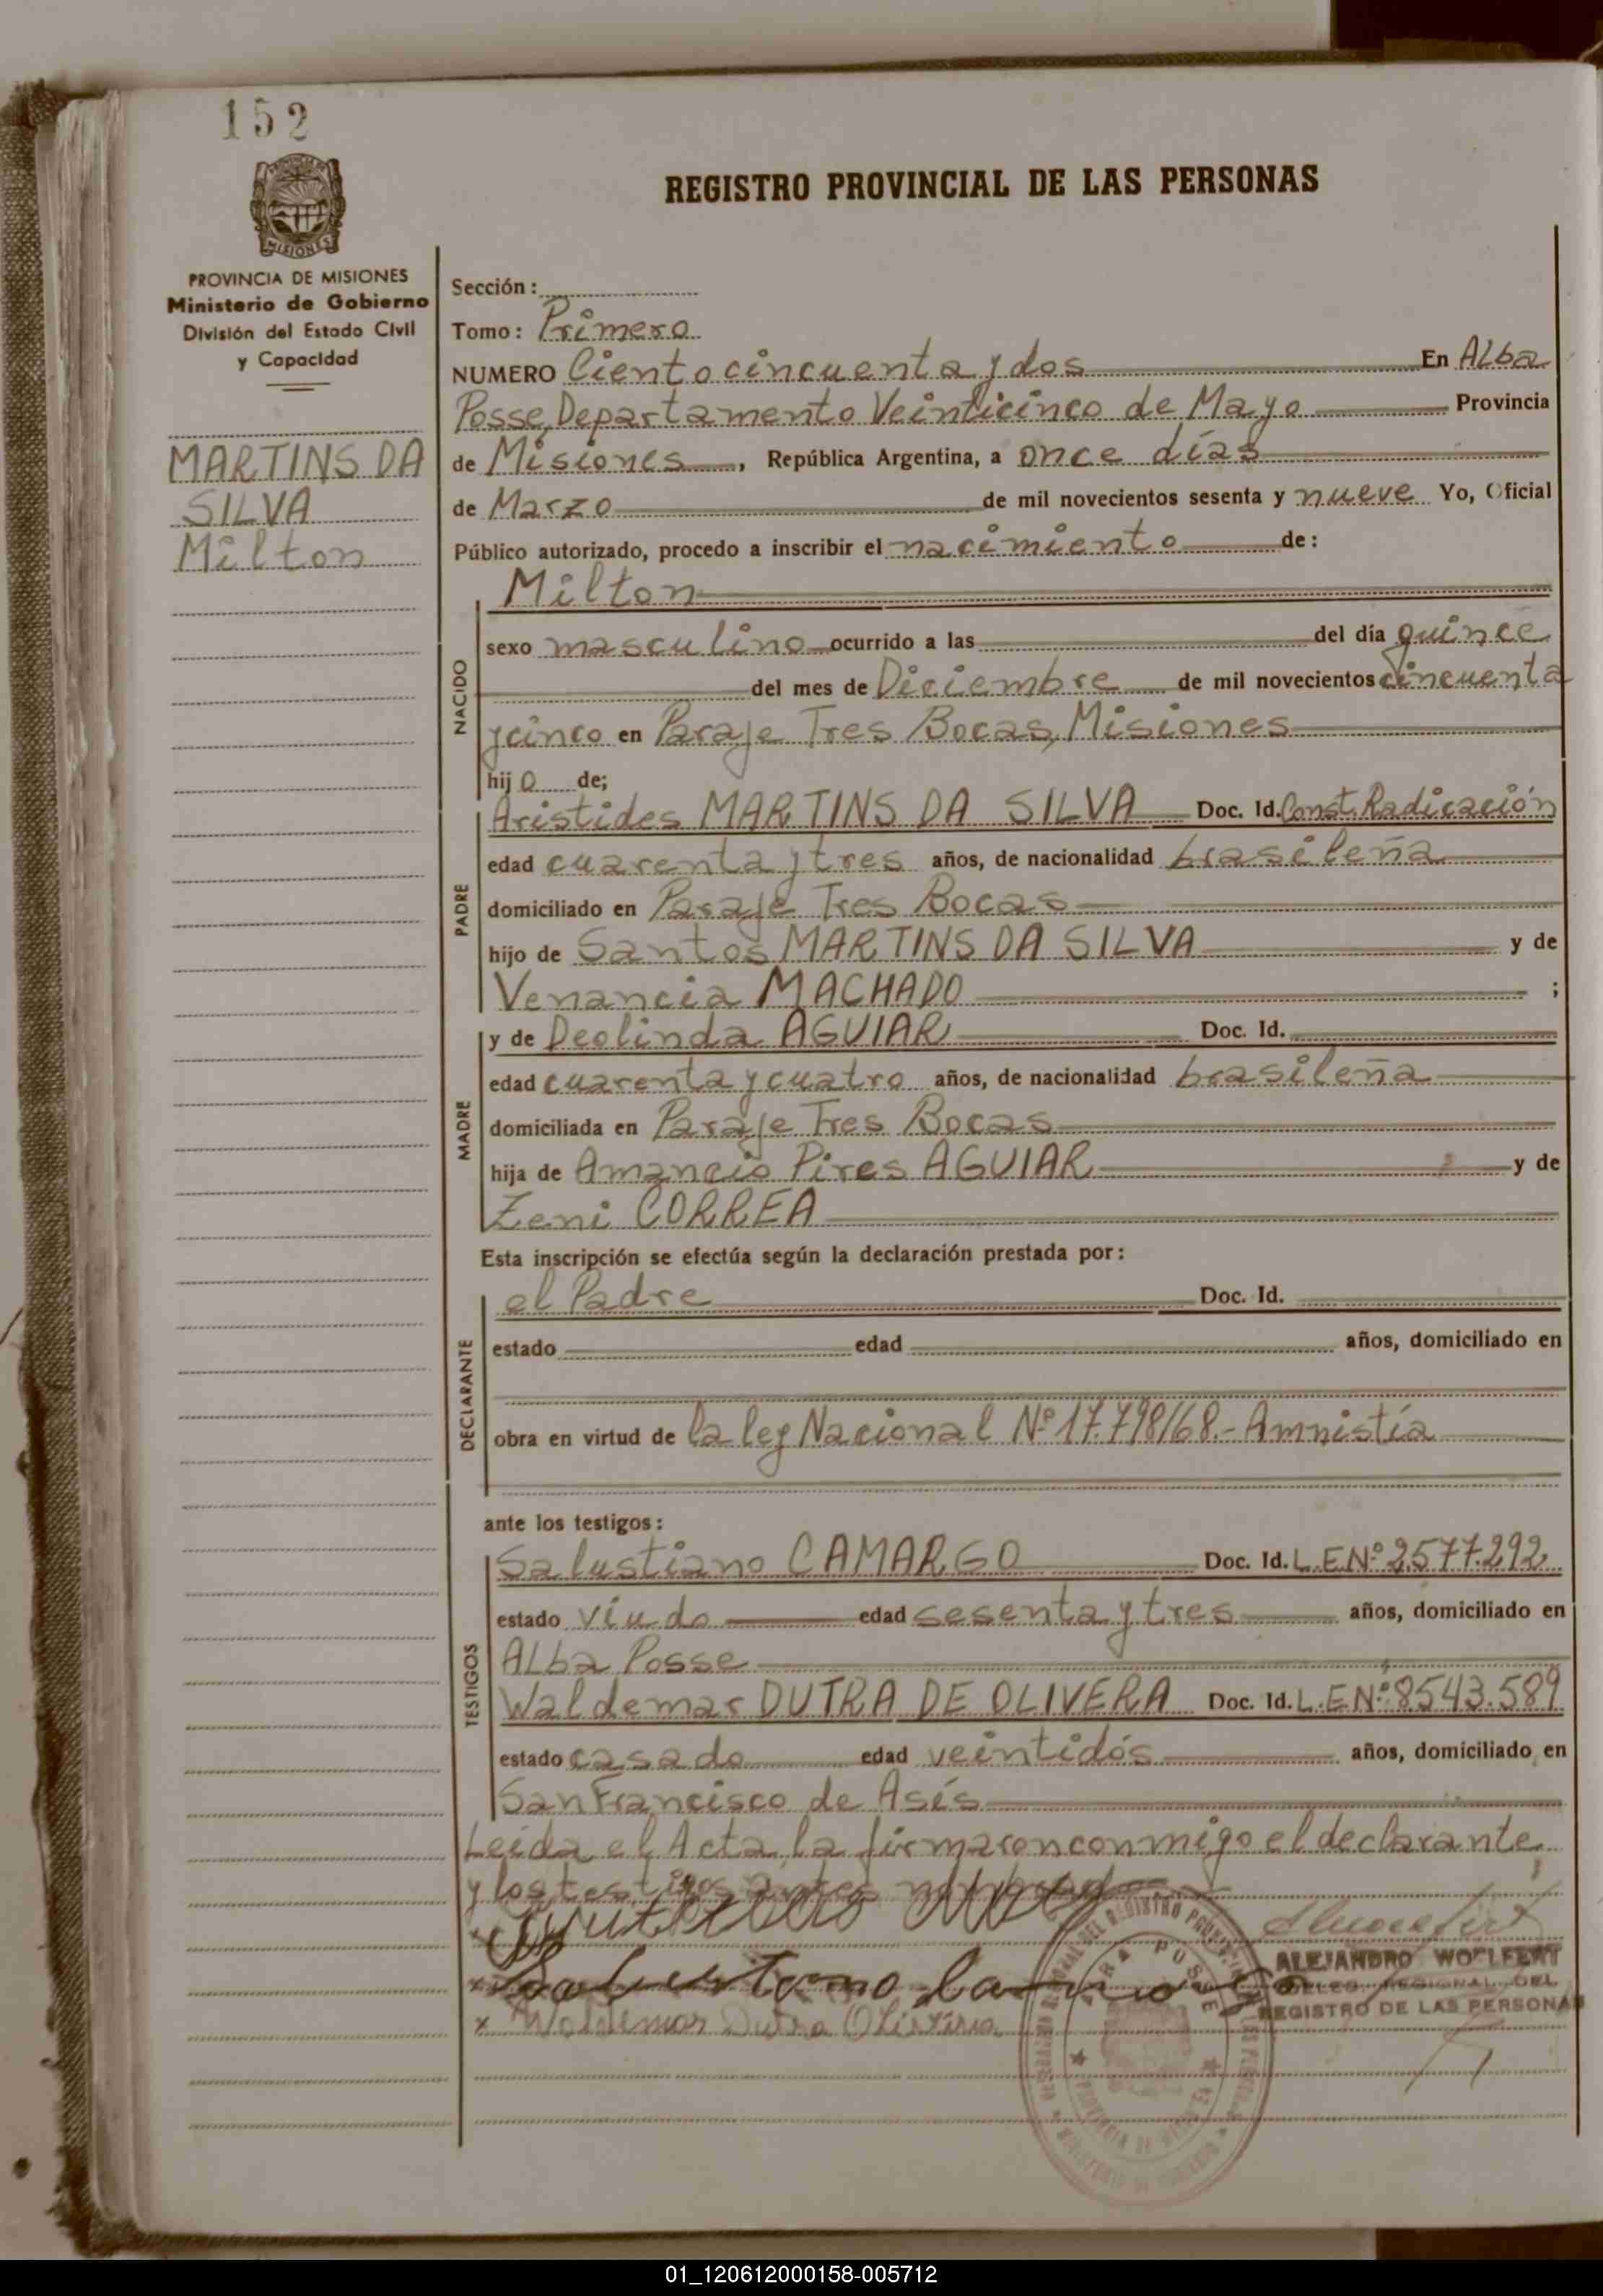 152
MISIONES
PROVINCIA DE MISIONES
Ministerio de Gobierno
División del Estado Civil
y Capacidad
MARTINS DA
SILVA
Milton
REGISTRO PROVINCIAL DE LAS PERSONAS
Sección:
Tomo: Primero
NUMERO Ciento cincuenta y dos En Alba
Posse, Departamento Veinticinco de Mayo Provincia
de Misiones, República Argentina, a once días
de Marzo de mil novecientos sesenta y nueve Yo, Oficial
Público autorizado, procedo a inscribir el nacimiento de:
Milton
NACIDO
sexo masculino ocurrido a las del día quince
del mes de Diciembre de mil novecientos cincuenta
y cinco en Paraje Tres Bocas, Misiones
hijo de;
PADRE
Aristides MARTINS DA SILVA Doc. Id. Const. Radicación
edad cuarenta y tres años, de nacionalidad brasileña
domiciliado en Paraje Tres Bocas
hijo de Santos MARTINS DA SILVA y de
Venancia MACHADO ;
MADRE
y de Deolinda AGUIAR Doc. Id.
edad cuarenta y cuatro años, de nacionalidad brasileña
domiciliada en Paraje Tres Bocas
hija de Amancio Pires AGUIAR y de
Zeni CORREA
Esta inscripción se efectúa según la declaración prestada por:
DECLARANTE
el Padre Doc. Id.
estado edad años, domiciliado en
obra en virtud de la ley Nacional Nº 17.798/68.- Amnistía
ante los testigos:
TESTIGOS
Salustiano CAMARGO Doc. Id. L.E.Nº 2.577.292
estado viudo edad sesenta y tres años, domiciliado en
Alba Posse
Waldemar DUTRA DE OLIVERA Doc. Id. L.E.Nº 8.543.589
estado casado edad veintidós años, domiciliado en
San Francisco de Asís
Leída el Acta, la firmaron conmigo el declarante
y los testigos antes nombrados
x Salustiano Camargo
x Waldemar Dutra Oliveira
ALEJANDRO WOELFERT
DELEG. REGIONAL DEL
REGISTRO DE LAS PERSONAS
01_120612000158-005712